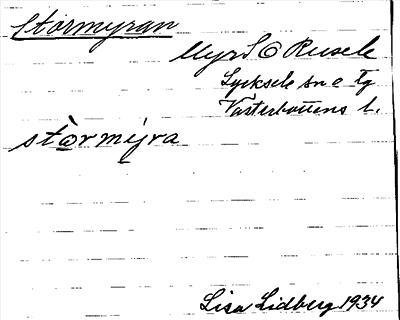 Stormyran
Myr S O Rusele
Lycksele sn o tg
Västerbottens l.
stòrmýra
Lisa Lidberg 1934